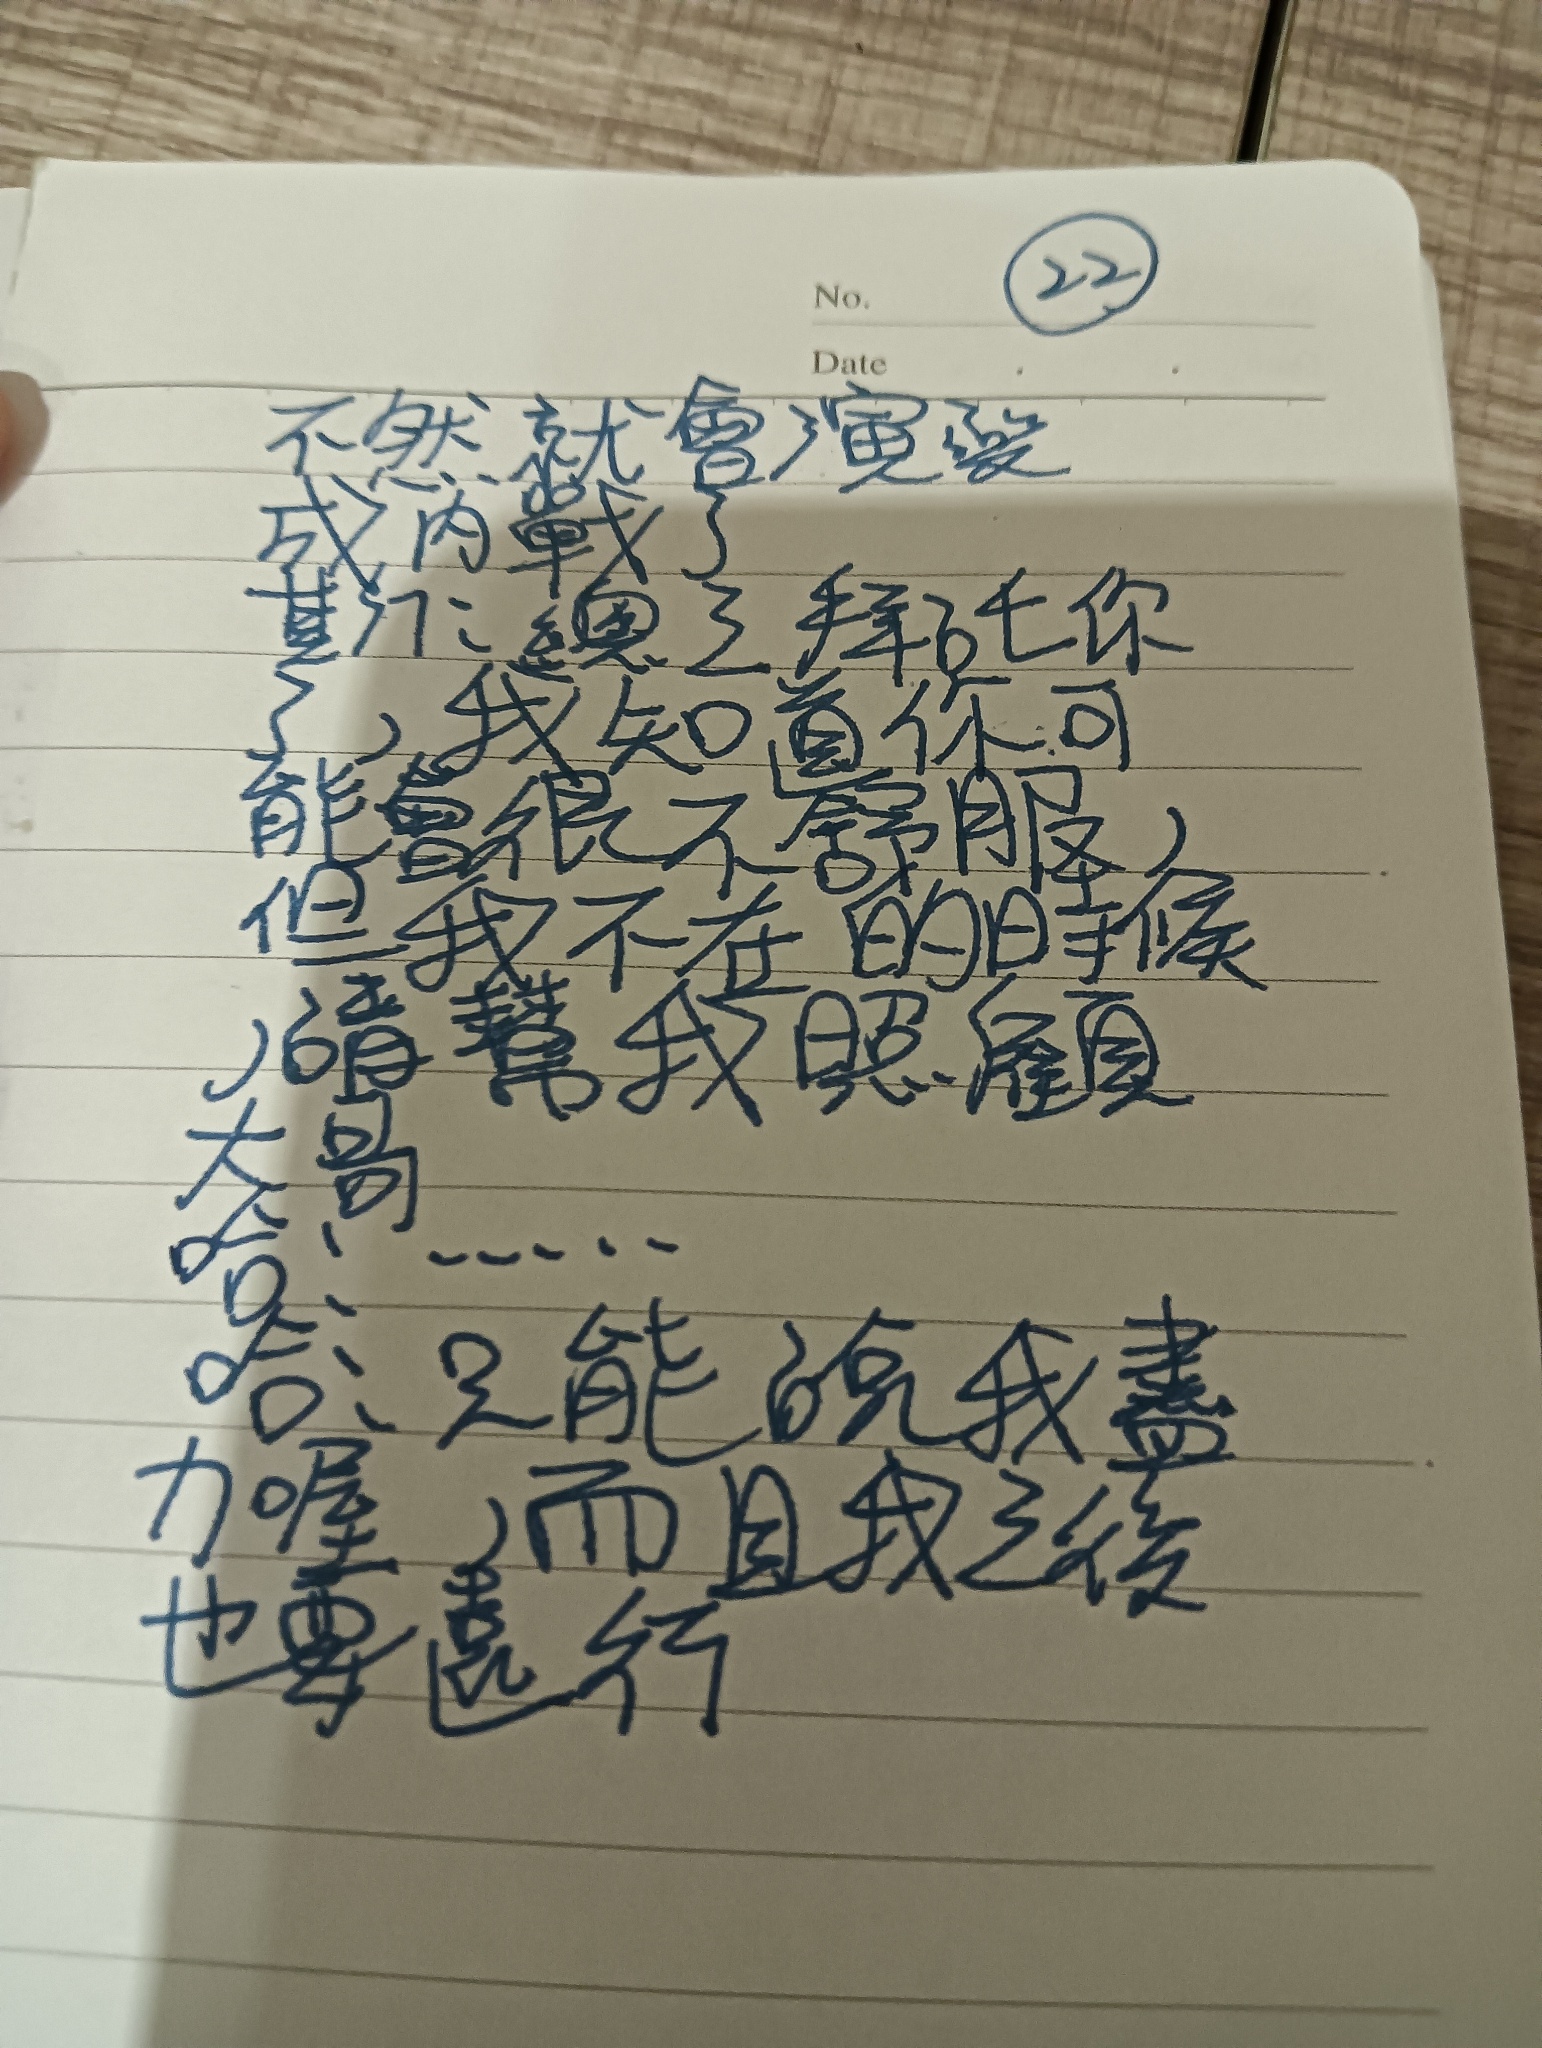 No. 22
Date
不然就會演變
成內戰了
甚:總之拜託你
了,我知道你可
能會很不舒服,
但我不在的時候
,請幫我照顧
大哥
哈:……
哈:只能說我盡
力喔,而且我之後
也要遠行